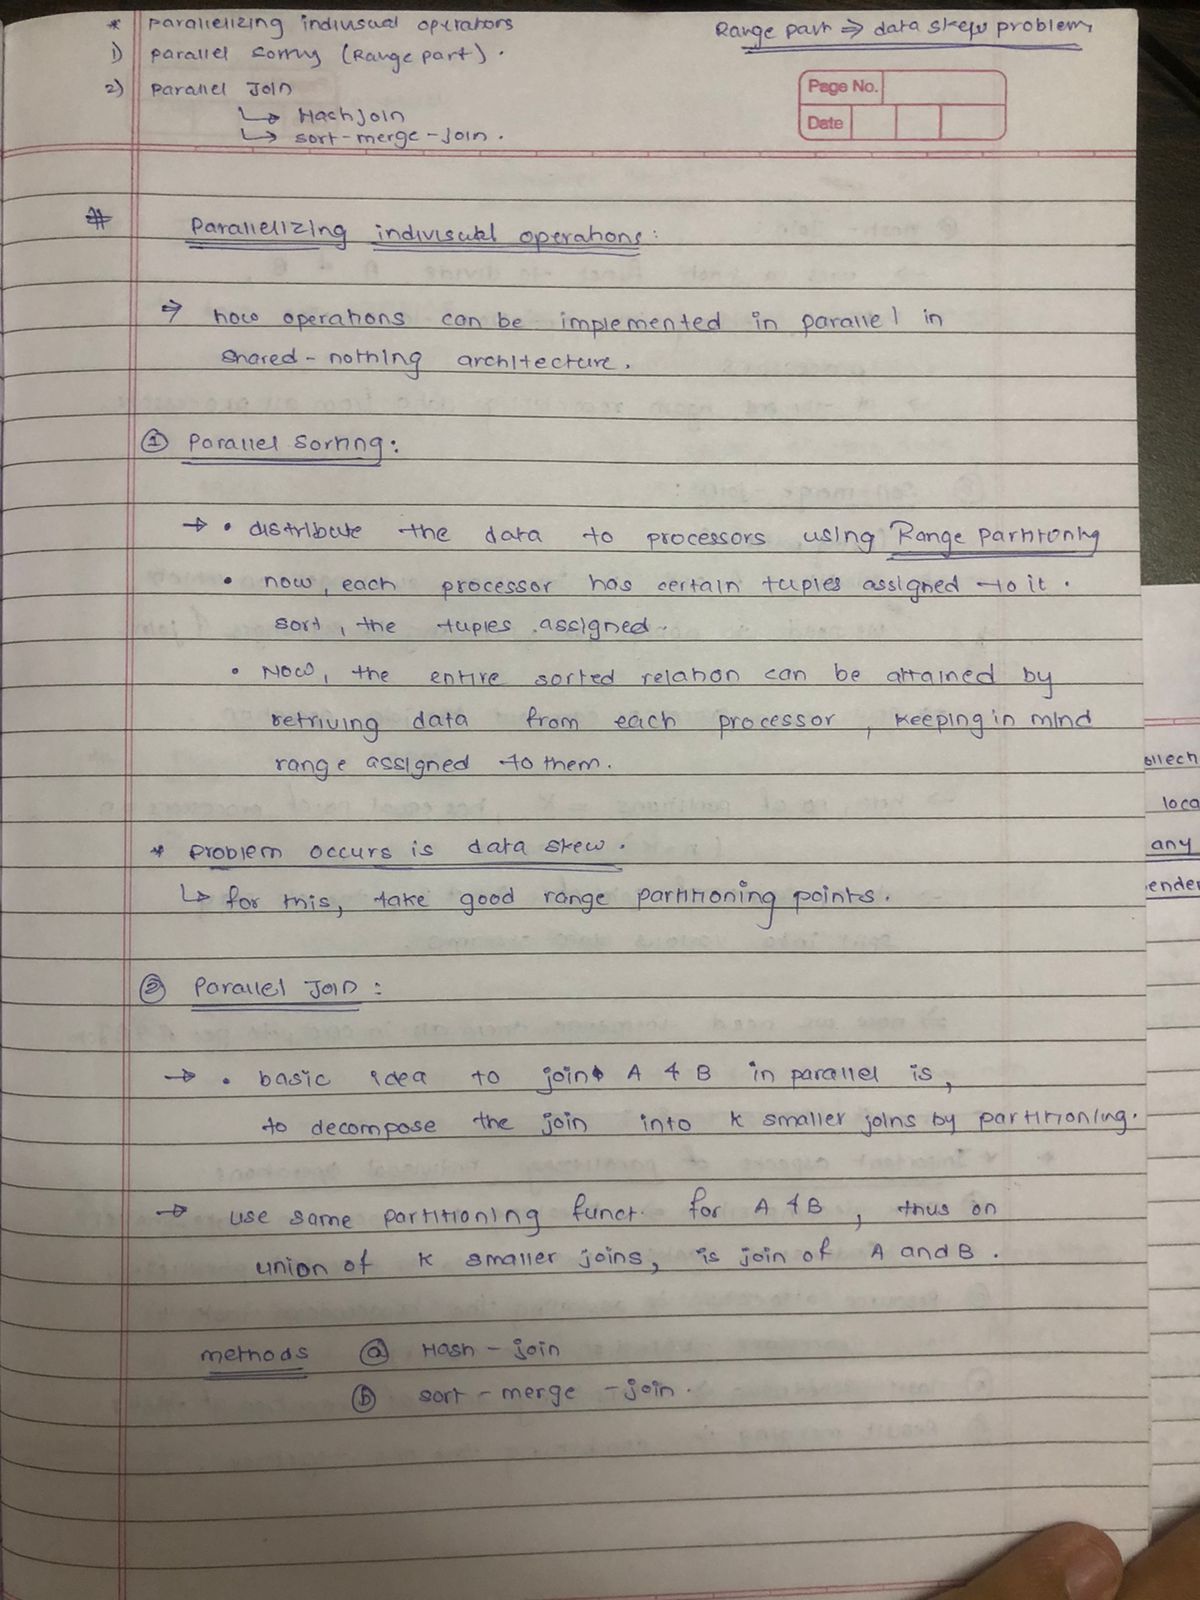 * Parallelizing indiviusual operators
1) Parallel sorting (Range part).
2) Parallel Join
↳ Hashjoin
↳ sort-merge-join.
Range part ⇒ data skew problem
Page No.
Date
# Parallelizing indivisual operations:
⇒ how operations can be implemented in parallel in
shared-nothing architecture.
① Parallel Sorting:
→ • distribute the data to processors using Range partitioning
• now, each processor has certain tuples assigned to it.
sort, the tuples assigned.
• Now, the entire sorted relation can be attained by
retriving data from each processor, keeping in mind
range assigned to them.
* problem occurs is data skew.
↳ for this, take good range partitioning points.
② Parallel Join:
→ • basic idea to join A & B in parallel is,
to decompose the join into K smaller joins by partitioning.
→ use same partitioning funct. for A & B, thus on
union of K smaller joins, is join of A and B.
methods ⓐ Hash-join
ⓑ sort-merge-join.
loca
any